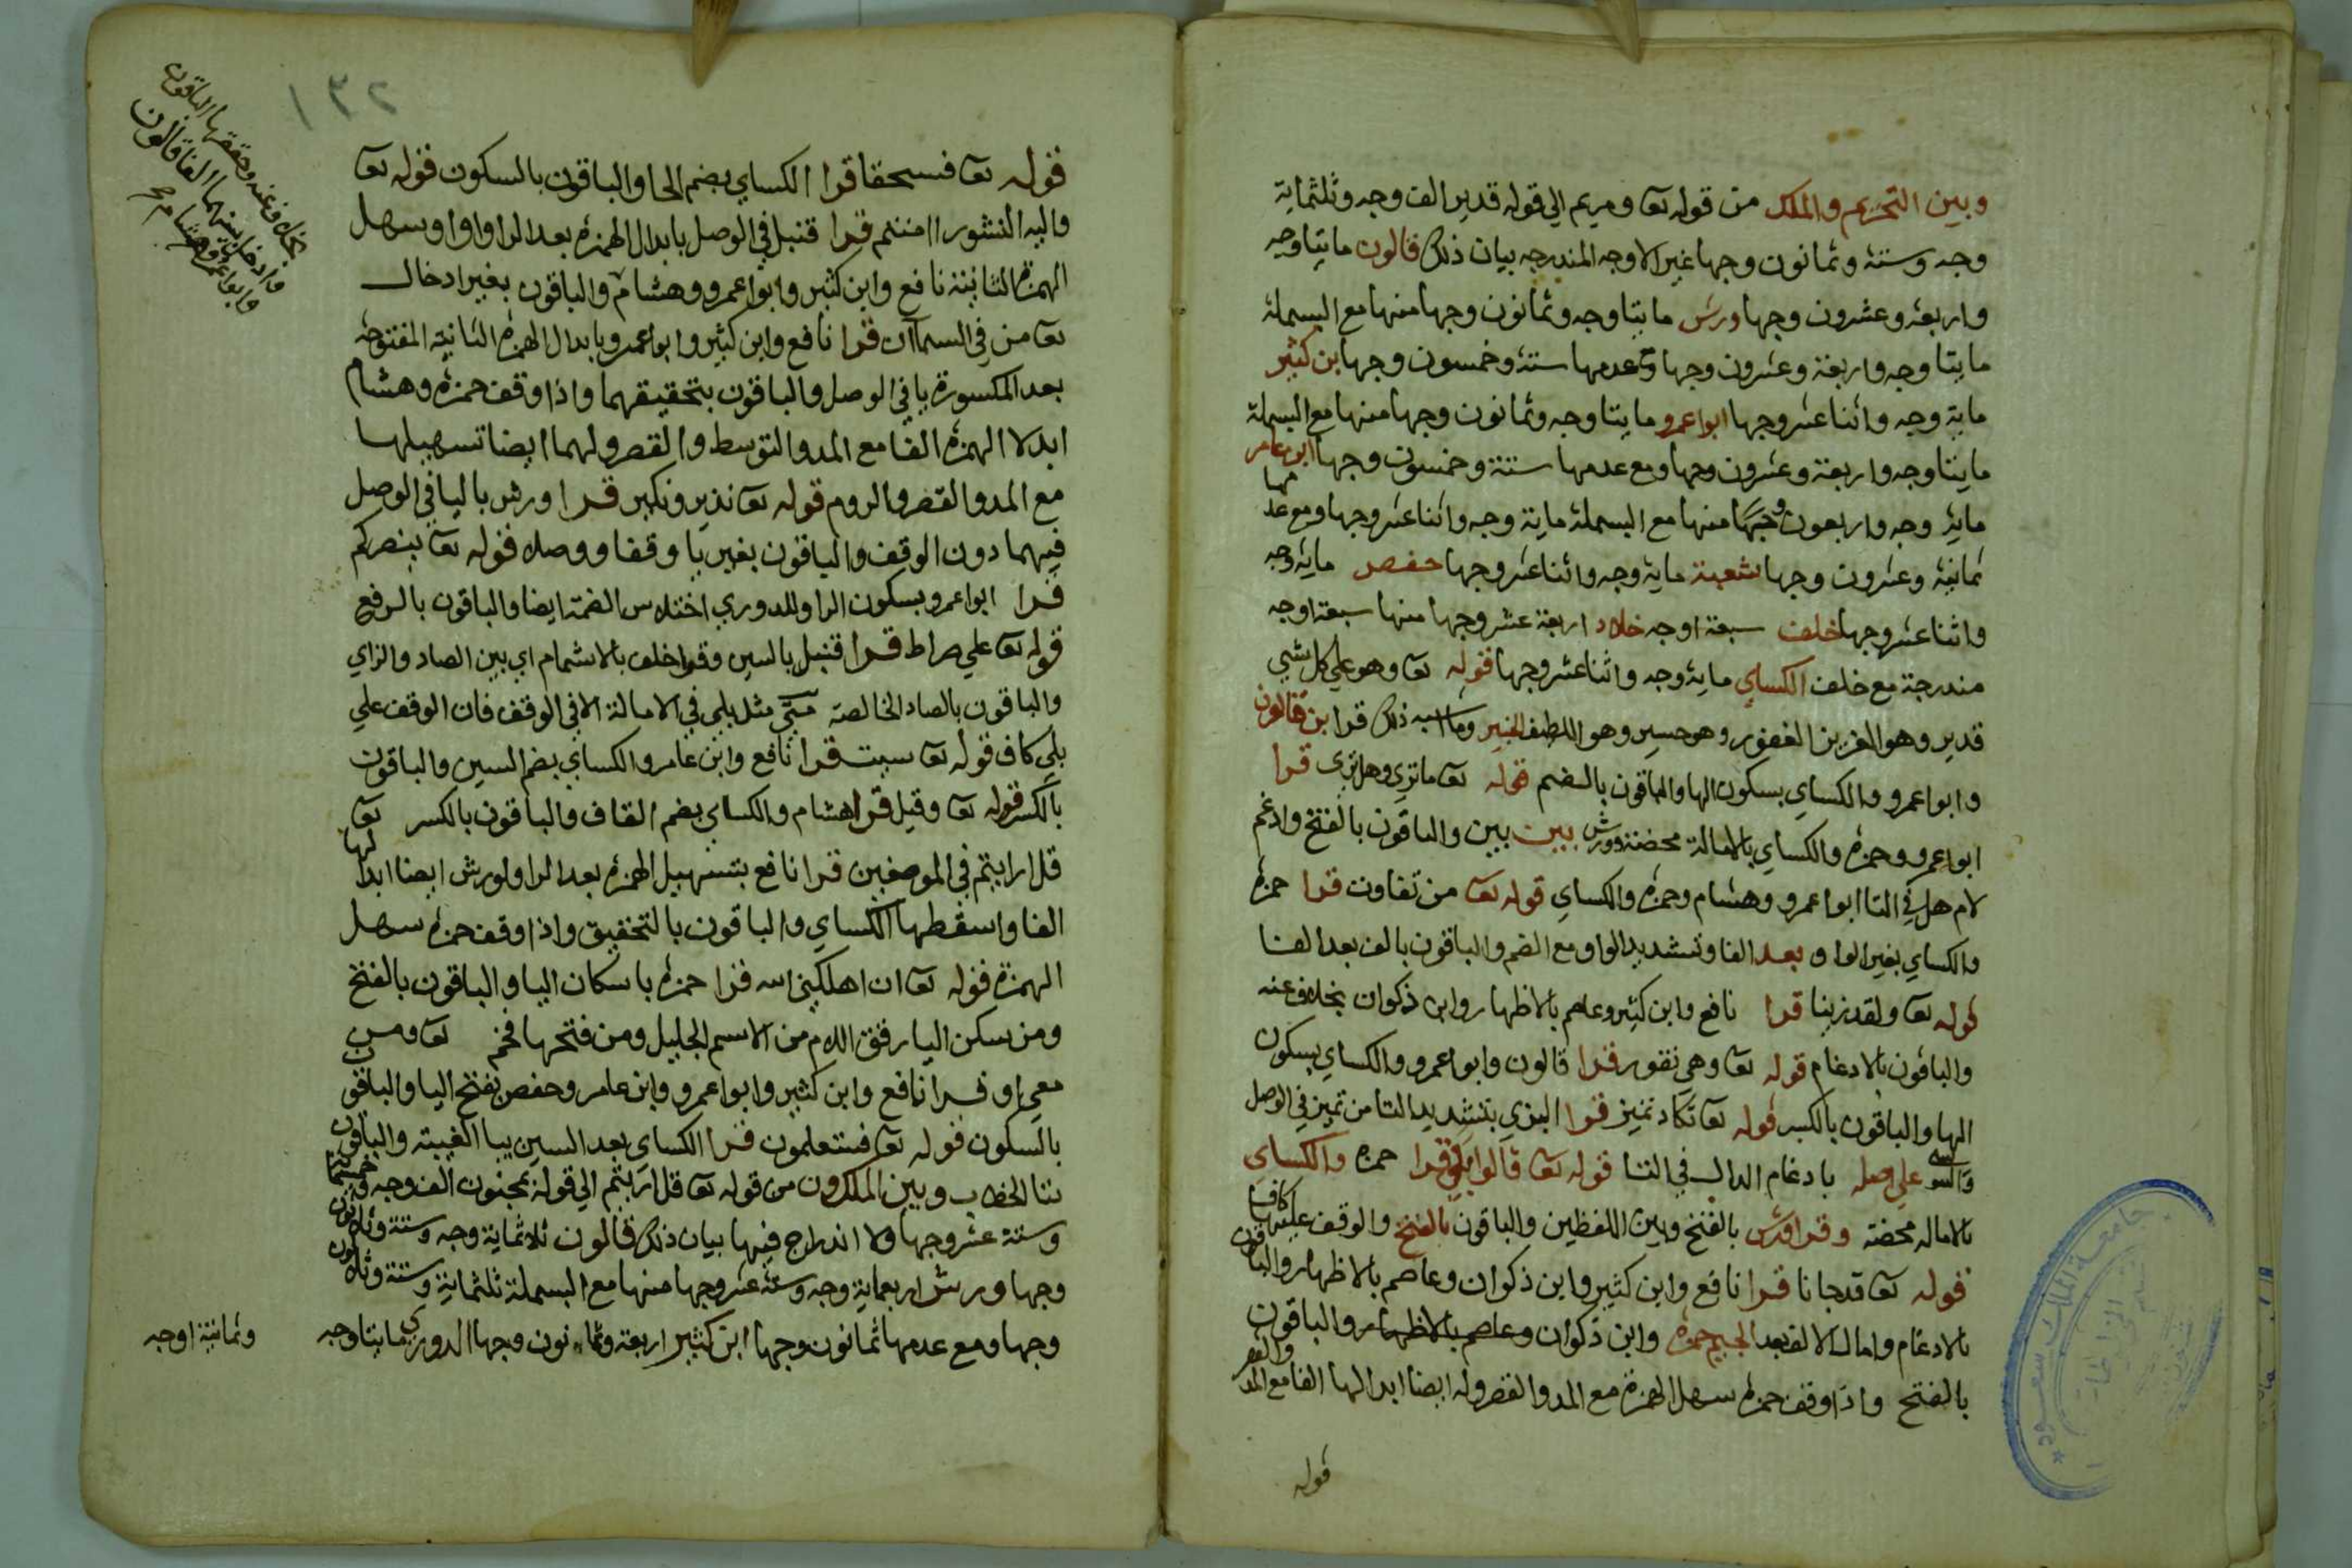 وبين التحريم والملك من قوله تعا ومريم الي قوله قدير الف وجه وثلثماية
وجه وستة وثمانون وجها غير الاوجه المندرجه بيان ذلك قالون مايتا وجه
واربعة وعشرون وجها ورش مايتا وجه وثمانون وجها منها مع البسملة
مايتا وجه واربعة وعشرون وجها ومع عدمها ستة وخمسون وجها بن كثير
ماية وجه واثنا عشر وجها ابوا عمرو مايتا وجه وثمانون وجها منها مع البسملة
مايتا وجه واربعة وعشرون وجها ومع عدمها ستة وخمسون وجها ابن عامر
ماية وجه واربعون وجها منها مع البسملة ماية وجه واثنا عشر وجها ومع عدمها
ثمانية وعشرون وجها شعبة ماية وجه واثنا عشر وجها حفص ماية وجه
واثنا عشر وجها خلف سبعة اوجه خلاد اربعة عشر وجها منها سبعة اوجه
مندرجة مع خلف الكساي ماية وجه واثنا عشر وجها قوله تعا وهو علي كل شي
قدير وهو العزيز الغفور وهو حسير وهو اللطيف الخبير وما اشبه ذلك قرا بن قالون
وابوا عمرو والكساي بسكون الها والباقون بالضم قوله تعا ما تري وهل تري قرا
ابوا عمرو وحمزه والكساي بالامالة محضة وورش بين بين والباقون بالفتح وادغم
لام هل في التا ابوا عمرو وهشام وحمزه والكساي قوله تعا من تفاوت قرا حمزه
والكساي بغير الواو بعد الفا وتشديد الواو مع الضم والباقون بالف بعد الفا
قوله تعا ولقد زينا قرا نافع وابن كثير وعاصم بالاظهار وابن ذكوان بخلاف عنه
والباقون بالادغام قوله تعا وهي تفور قرا قالون وابوا عمرو والكساي بسكون
الها والباقون بالكسر قوله تعا تكاد تميز قرا البزي بتشديد التا من تميز في الوصل
والسوسي علي اصله بادغام الدال في التا قوله تعا قالوا بلي قرا حمزه والكساي
بالاماله محضة وقرا ورش بالفتح وبين اللفظين والباقون بالفتح والوقف عليها كاف
قوله تعا قد جانا قرا نافع وابن كثير وابن ذكوان وعاصم بالاظهار والباقون
بالادغام وامال الالف بعد الجيم حمزه وابن ذكوان وعاصم بالاظهار والباقون
بالفتح واذا وقف حمزه سهل الهمزة مع المد والقصر وله ايضا ابدالها الفا مع المد والقصر
قوله
٢٣١
قوله تعا فسحقا قرا الكساي بضم الحا والباقون بالسكون قوله تعا
واليه النشور اامنتم قرا قنبل في الوصل بابدال الهمزه بعد الراواوا وسهل
الهمزة الثانية نافع وابن كثير وابوا عمرو وهشام والباقون بغير ادخال
تعا من في السما ان قرا نافع وابن كثير وابوا عمرو بابدال الهمزة الثانية المفتوحة
بعد المكسورة يا في الوصل والباقون بتحقيقهما واذا وقف حمزه وهشام
ابدلا الهمزه الفا مع المد والتوسط والقصر ولهما ايضا تسهيلها
مع المد والقصر والروم قوله تعا نذير ونكير قرا ورش باليا في الوصل
فيهما دون الوقف والباقون بغير يا وقفا ووصلا قوله تعا ينصركم
قرا ابوا عمرو بسكون الرا وللدوري اختلاس الضمة ايضا والباقون بالرفع
قوله تعا علي صراط قرا قنبل بالسين وقرا خلف بالاشمام اي بين الصاد والزاي
والباقون بالصاد الخالصة متي مثل بلي في الامالة الا في الوقف فان الوقف علي
بلي كاف قوله تعا سيت قرا نافع وابن عامر والكساي بضم السين والباقون
بالكسر قوله تعا وقيل قرا هشام والكساي بضم القاف والباقون بالكسر تعا
قل ارايتم في الموضعين قرا نافع بتسهيل الهمزه بعد الرا ولورش ايضا ابدالها
الفا واسقطها الكساي والباقون بالتحقيق واذا وقف حمزه سهل
الهمزة قوله تعا ان اهلكني الله قرا حمزه باسكان اليا والباقون بالفتح
ومن سكن اليا رقق اللام من الاسم الجليل ومن فتحها فخم تعا ومن
معي او قرا نافع وابن كثير وابوا عمرو وابن عامر وحفص بفتح اليا والباقون
بالسكون قوله تعا فستعلمون قرا الكساي بعد السين بيا الغيبة والباقون
بتا الخطاب وبين الملك ون من قوله تعا قل ارايتم الي قوله بمجنون الف وجه وخمسماية
وستة عشر وجها ولا اندراج فيها بيان ذلك قالون ثلاثماية وجه وستة وثلاثون
وجها ورش اربعماية وجه وستة عشر وجها منها مع البسملة ثلثماية وستة وثلاثون
وجها ومع عدمها ثمانون وجها ابن كثير اربعة وثمانون وجها الدوري مايتا وجه
وثمانية اوجه
بخلاف عنه وحققها الباقون
وادخل بينهما الفا قالون
وابوا عمرو وهشام صح